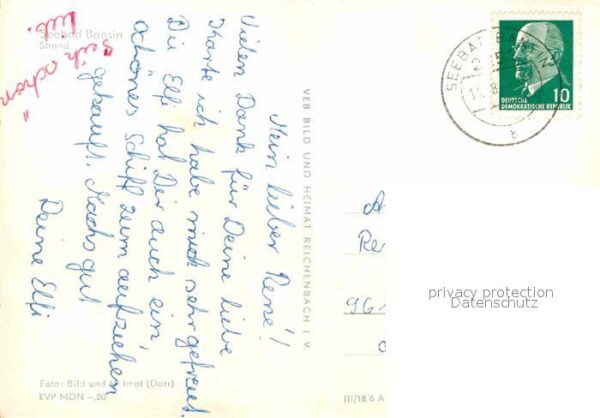 Seebad Bansin
Strand
Mein lieber René!
Vielen Dank für Deine liebe
Karte ich habe mich sehr gefreut.
Die Elfi hat Dir auch ein
schönes Schiff zum aufziehen
gekauft. Machs gut
Deine Elfi
Foto: Bild und Heimat (Darr)
EVP MDN -,20
VEB BILD UND HEIMAT REICHENBACH I. V.
III/18/6 A
10
DEUTSCHE
DEMOKRATISCHE REPUBLIK
SEEBAD
A
Re
96-
privacy protection
Datenschutz